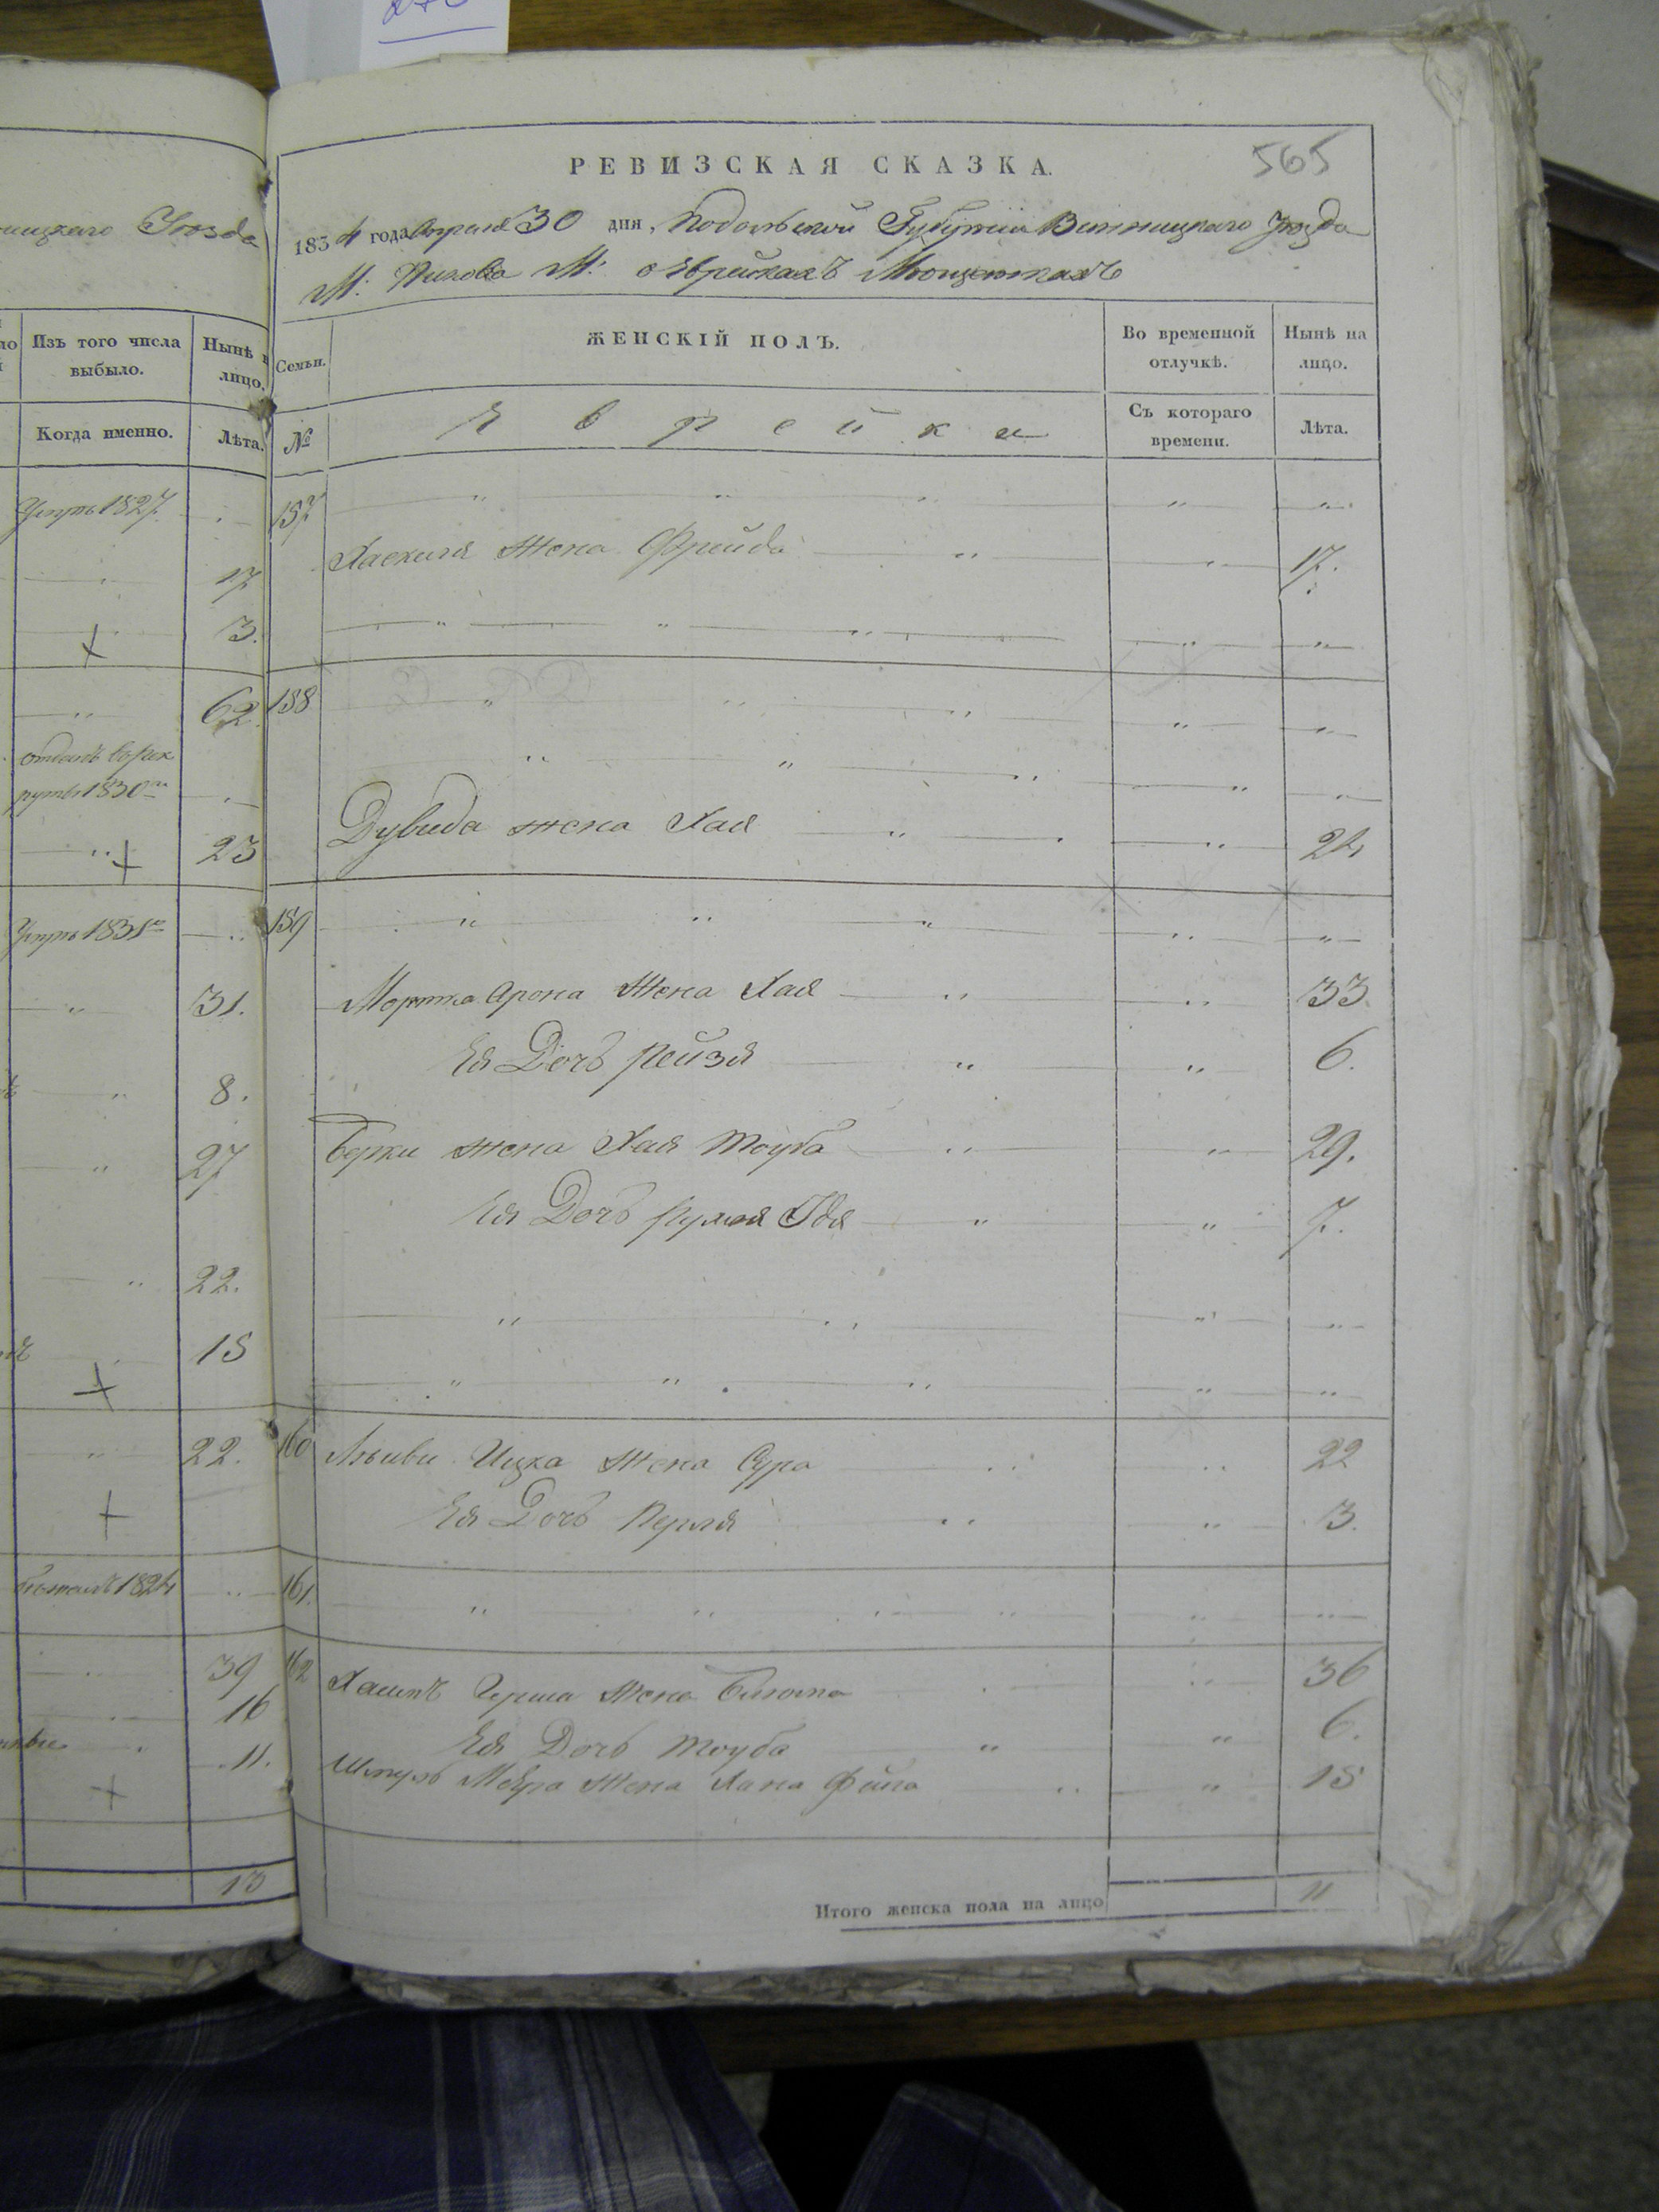 565
РЕВИЗСКАЯ СКАЗКА.
1834 года Апреля 30 дня, Подольской Губернии Винницкаго уезда
М: Пикова М: о Еврейкахъ Мющенкахъ
Уезда
Изъ того числа выбыло.
Нынѣ
лицо.
Когда именно.
Лѣта.
Семьи.
ЖЕНСКІЙ ПОЛЪ.
Во временной отлучкѣ.
Нынѣ на лицо.
№
Еврейки
Съ котораго времени.
Лѣта.
умре 1827
157
17
Хаскиля жена Фрейда 17.
3.
62 158
отданъ въ рек
руты 1830
23
Дувида жена Хая 24
умре 1831
159
31.
Мортка Арона жена Хая 33
Ея Дочь Рейзя 6.
8.
27
Берки жена Хая Тоуба 29.
Ея Дочь Рухля Идя 7.
22.
15
22. 160 Лейви Ицка жена Сура 22
Ея Дочь Перля 3.
1824
161.
39 162 Хаимъ Герша жена Блюма 36
16
Ея Дочь Тоуба 6.
11.
Шмуль Меера жена Хана Фейга 15
13
Итого женска пола на лицо 11